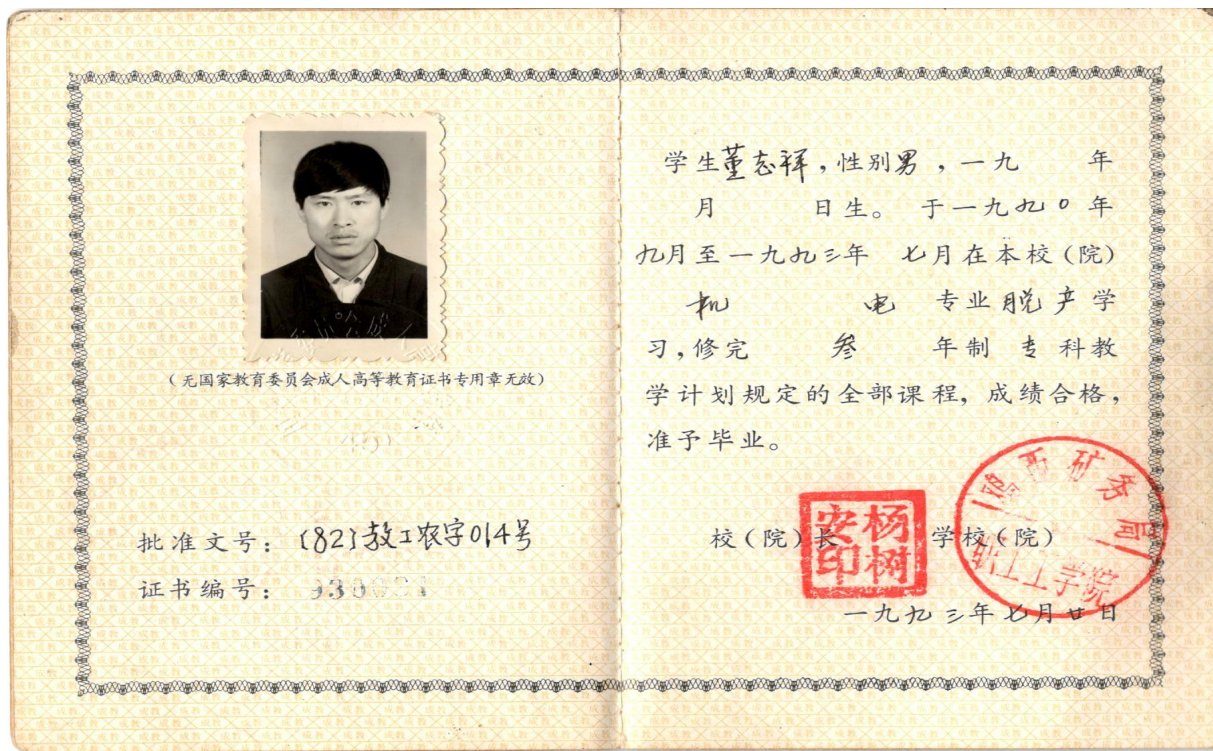 (无国家教育委员会成人高等教育证书专用章无效)
批准文号: (82)教工农字014号
证书编号: 930021
学生董志祥,性别男,一九 年
月 日生。 于一九九0年
九月至一九九三年 七月在本校(院)
机 电 专业脱产学
习,修完 叁 年制 专 科教
学计划规定的全部课程, 成绩合格,
准予毕业。
校(院)长 学校(院)
杨树安印
鸡西矿务局
职工工学院
一九九三年七月廿日